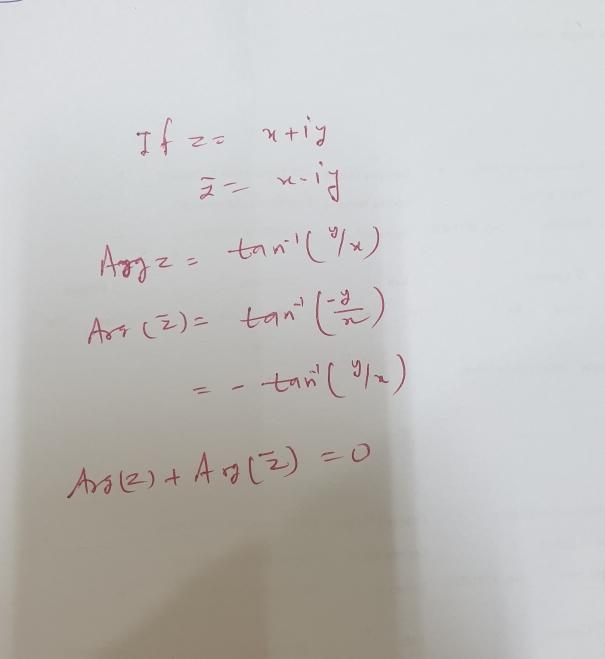 If z = x+iy
z̄ = x-iy
Arg z = tan⁻¹(y/x)
Arg (z̄) = tan⁻¹(-y/x)
= - tan⁻¹(y/x)
Arg(z) + Arg(z̄) = 0